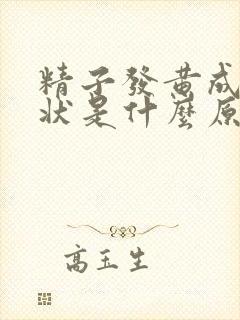 精子發黃成
狀是什麼原
高玉生